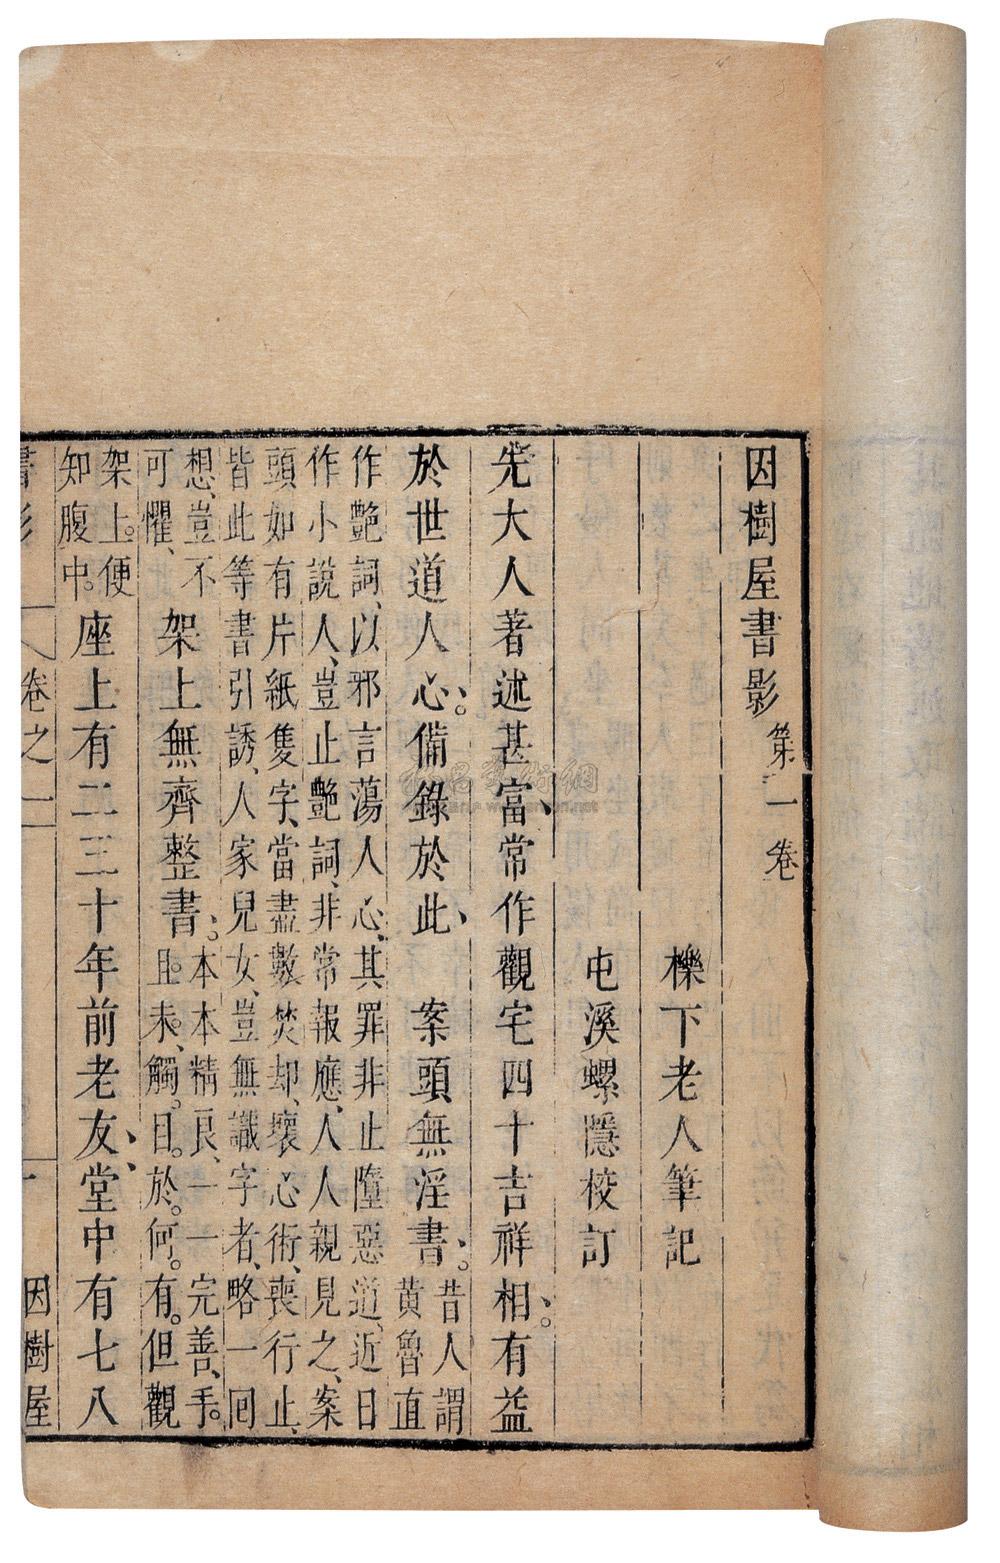 因樹屋書影第一卷
櫟下老人筆記
屯溪螺隱校訂
先大人著述甚富、常作觀宅四十吉祥相、。有益
於世道人心、。備錄於此、　案頭無淫書、。昔人謂
黃魯直
作艷詞、以邪言蕩人心、其罪非止墮惡道、近日
作小說人、豈止艷詞、非常報應、人人親見之、案
頭如有片紙隻字、當盡數焚却、壞心術、喪行止、
皆此等書引誘、人家兒女、豈無識字者、略一回
想、豈不
可懼、
架上無齊整書、。本本精良、一一完善、手。
且。未、觸。目。於。何。有。但觀
架上。便
知腹中。
座上有二三十年前老友、、堂中有七八
書影　卷之一　一　因樹屋